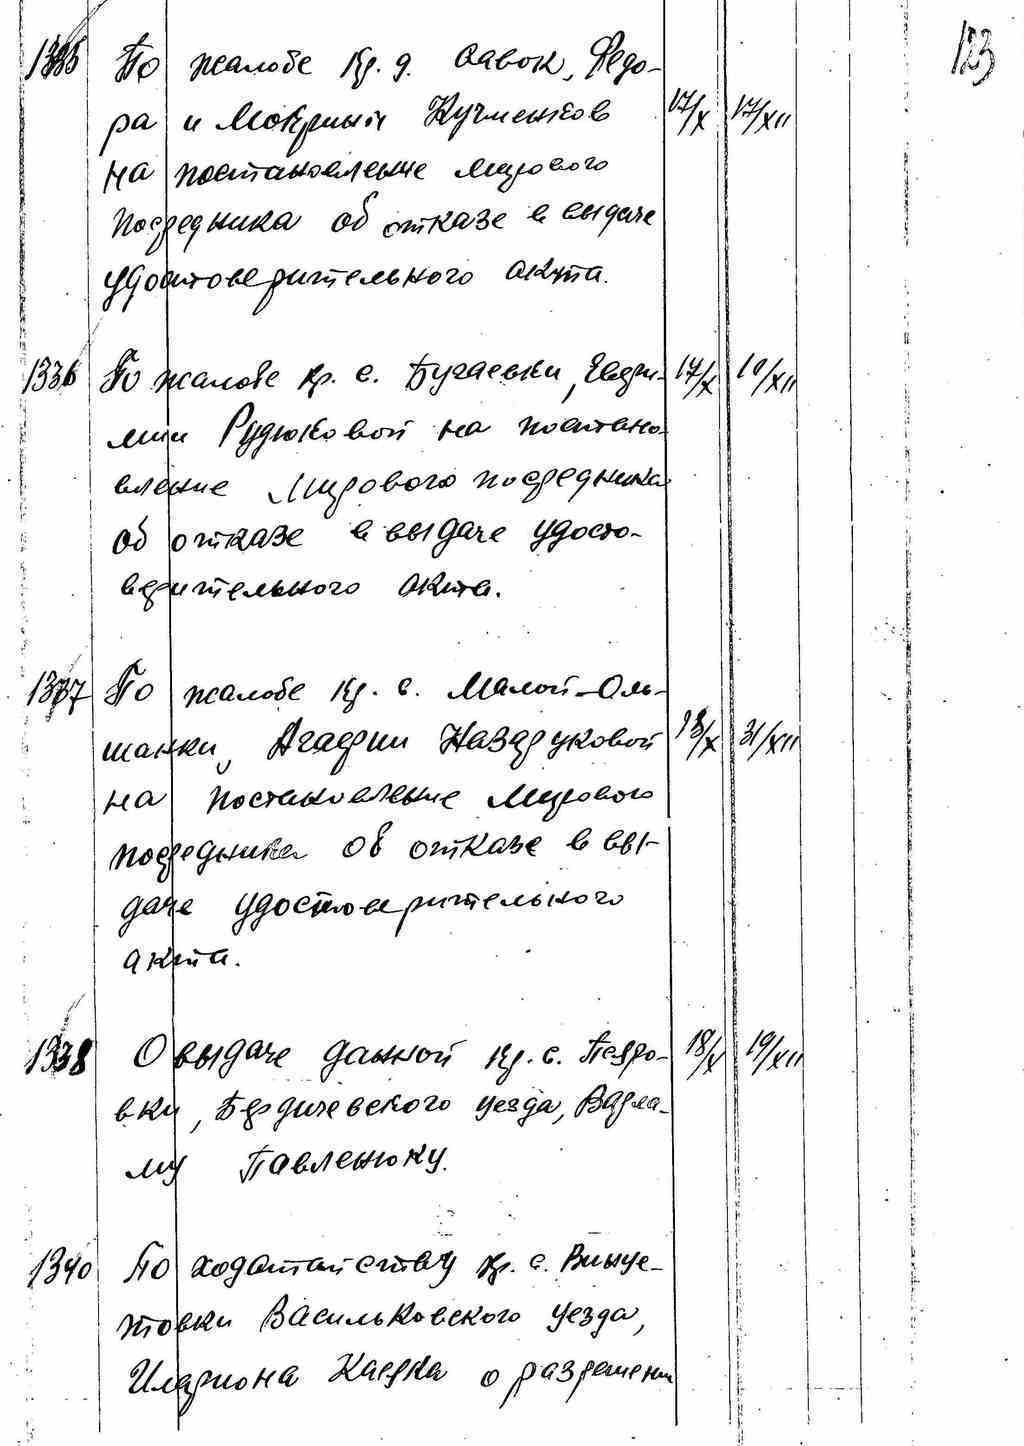 123
1335 По жалобе кр. д. Савок, Федо-
ра и Мокрыны Кучменков 17/X 17/XII
на постановление мирового
посредника об отказе в выдаче
удостоверительного акта.
1336 По жалобе кр. с. Бугаевки, Евфи- 17/X 10/XII
мии Рудюковой на постано-
вление мирового посредника
об отказе в выдаче удосто-
верительного акта.
1337 По жалобе кр. с. Малой-Оль-
шанки, Агафии Назаруковой 18/X 31/XII
на постановление мирового
посредника об отказе в вы-
даче удостоверительного
акта.
1338 О выдаче данной кр. с. Педро- 18/X 19/XII
вки, Бердичевского уезда, Варла-
му Павленюку.
1340 По ходатайству кр. с. Винце-
товки Васильковского уезда,
Илариона о разрешении